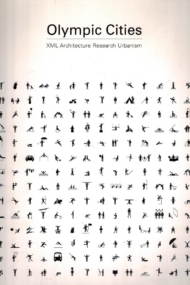 Olympic Cities
XML Architecture Research Urbanism